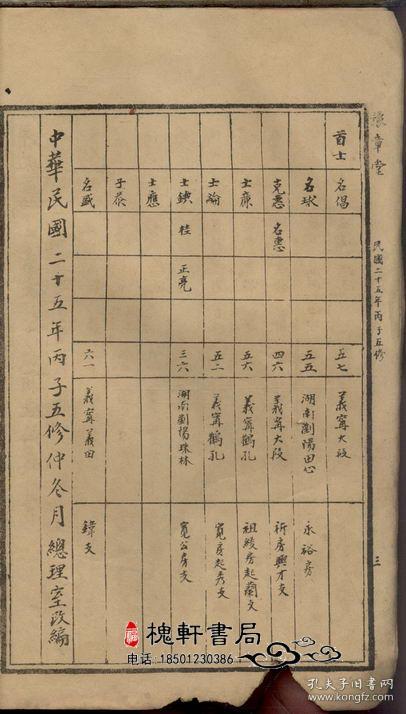 民國二十五年丙子五修
三
首士
名倡 五七 義寗大段
名球 五五 湖南劉陽田心 永裕房
克惠 名惠 四六 義寗大段 祈房興才支
士廉 五六 義寗鶴孔 祖綾房起蘭支
士論 五二 義寗鶴孔 寬房起秀支
士鐭 桂 正亮 三六 湖南劉陽珠林 寬公房支
士應
子恭
名盛 六一 義寗義田 鍏支
中華民國二十五年丙子五修仲冬月總理室改編
槐軒書局
电话:18501230386
孔夫子旧书网
kongfz.com